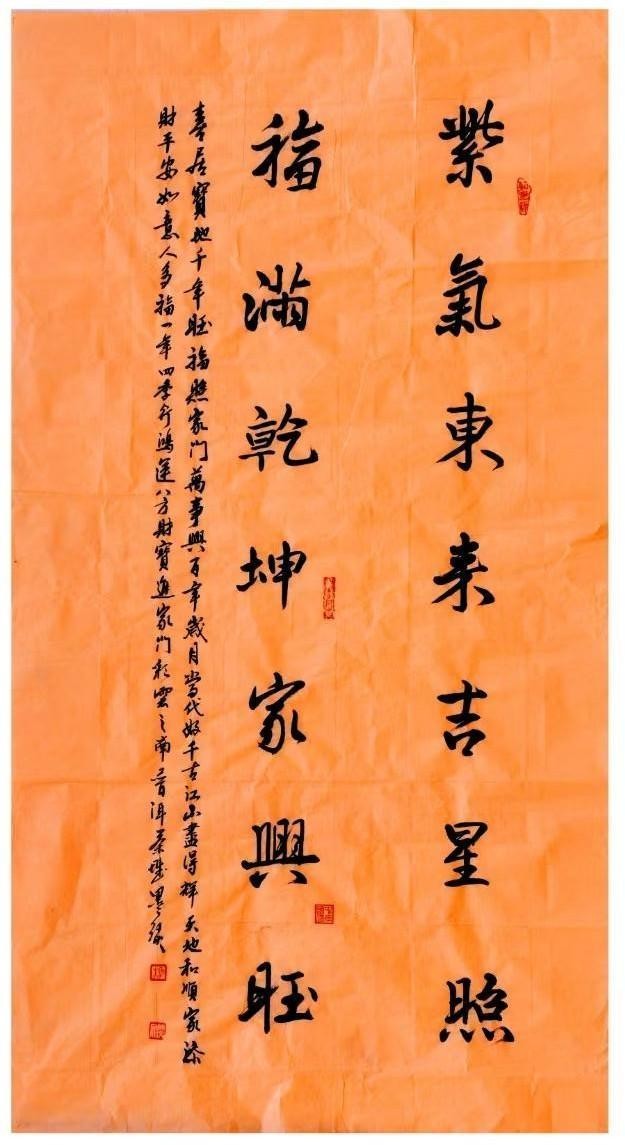 紫氣東来吉星照
福滿乾坤家興旺
喜居寶地千年旺福照家門萬事興百年歲月當代好千古江山盡得輝天地和順家添
財平安如意人多福一年四季行鴻運八方財寶進家門彩雲之南普洱茶城墨賢